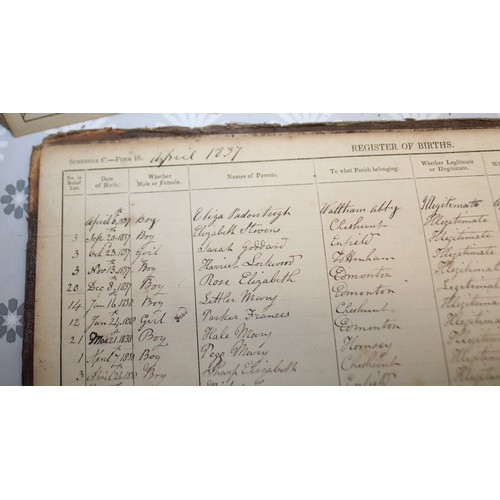 SCHEDULE C.—FORM 16. April 1837
REGISTER OF BIRTHS.
No. in Relief List. Date of Birth. Whether Male or Female. Names of Parents. To what Parish belonging. Whether Legitimate or Illegitimate.
April 6th 1837 Boy Eliza Waltham Abby Illegitimate
3 Sep 20 1837 Boy Elizabeth Stevens Cheshunt Illegitimate
3 Oct 23 1837 Girl Sarah Goddard Enfield Illegitimate
3 Nov 13 1837 Boy Harriet Lockwood Tottenham Illegitimate
20 Dec 8 1837 Boy Rose Elizabeth Edmonton Illegitimate
14 Jan 16 1838 Boy Mary Edmonton Legitimate
12 Jan 24 1838 Girl Parker Frances Cheshunt Illegitimate
21 1838 Boy Hale Mary Edmonton Illegitimate
1 1838 Boy Pegg Mary Hornsey
3 April 1838 Boy Sharp Elizabeth Cheshunt
Enfield